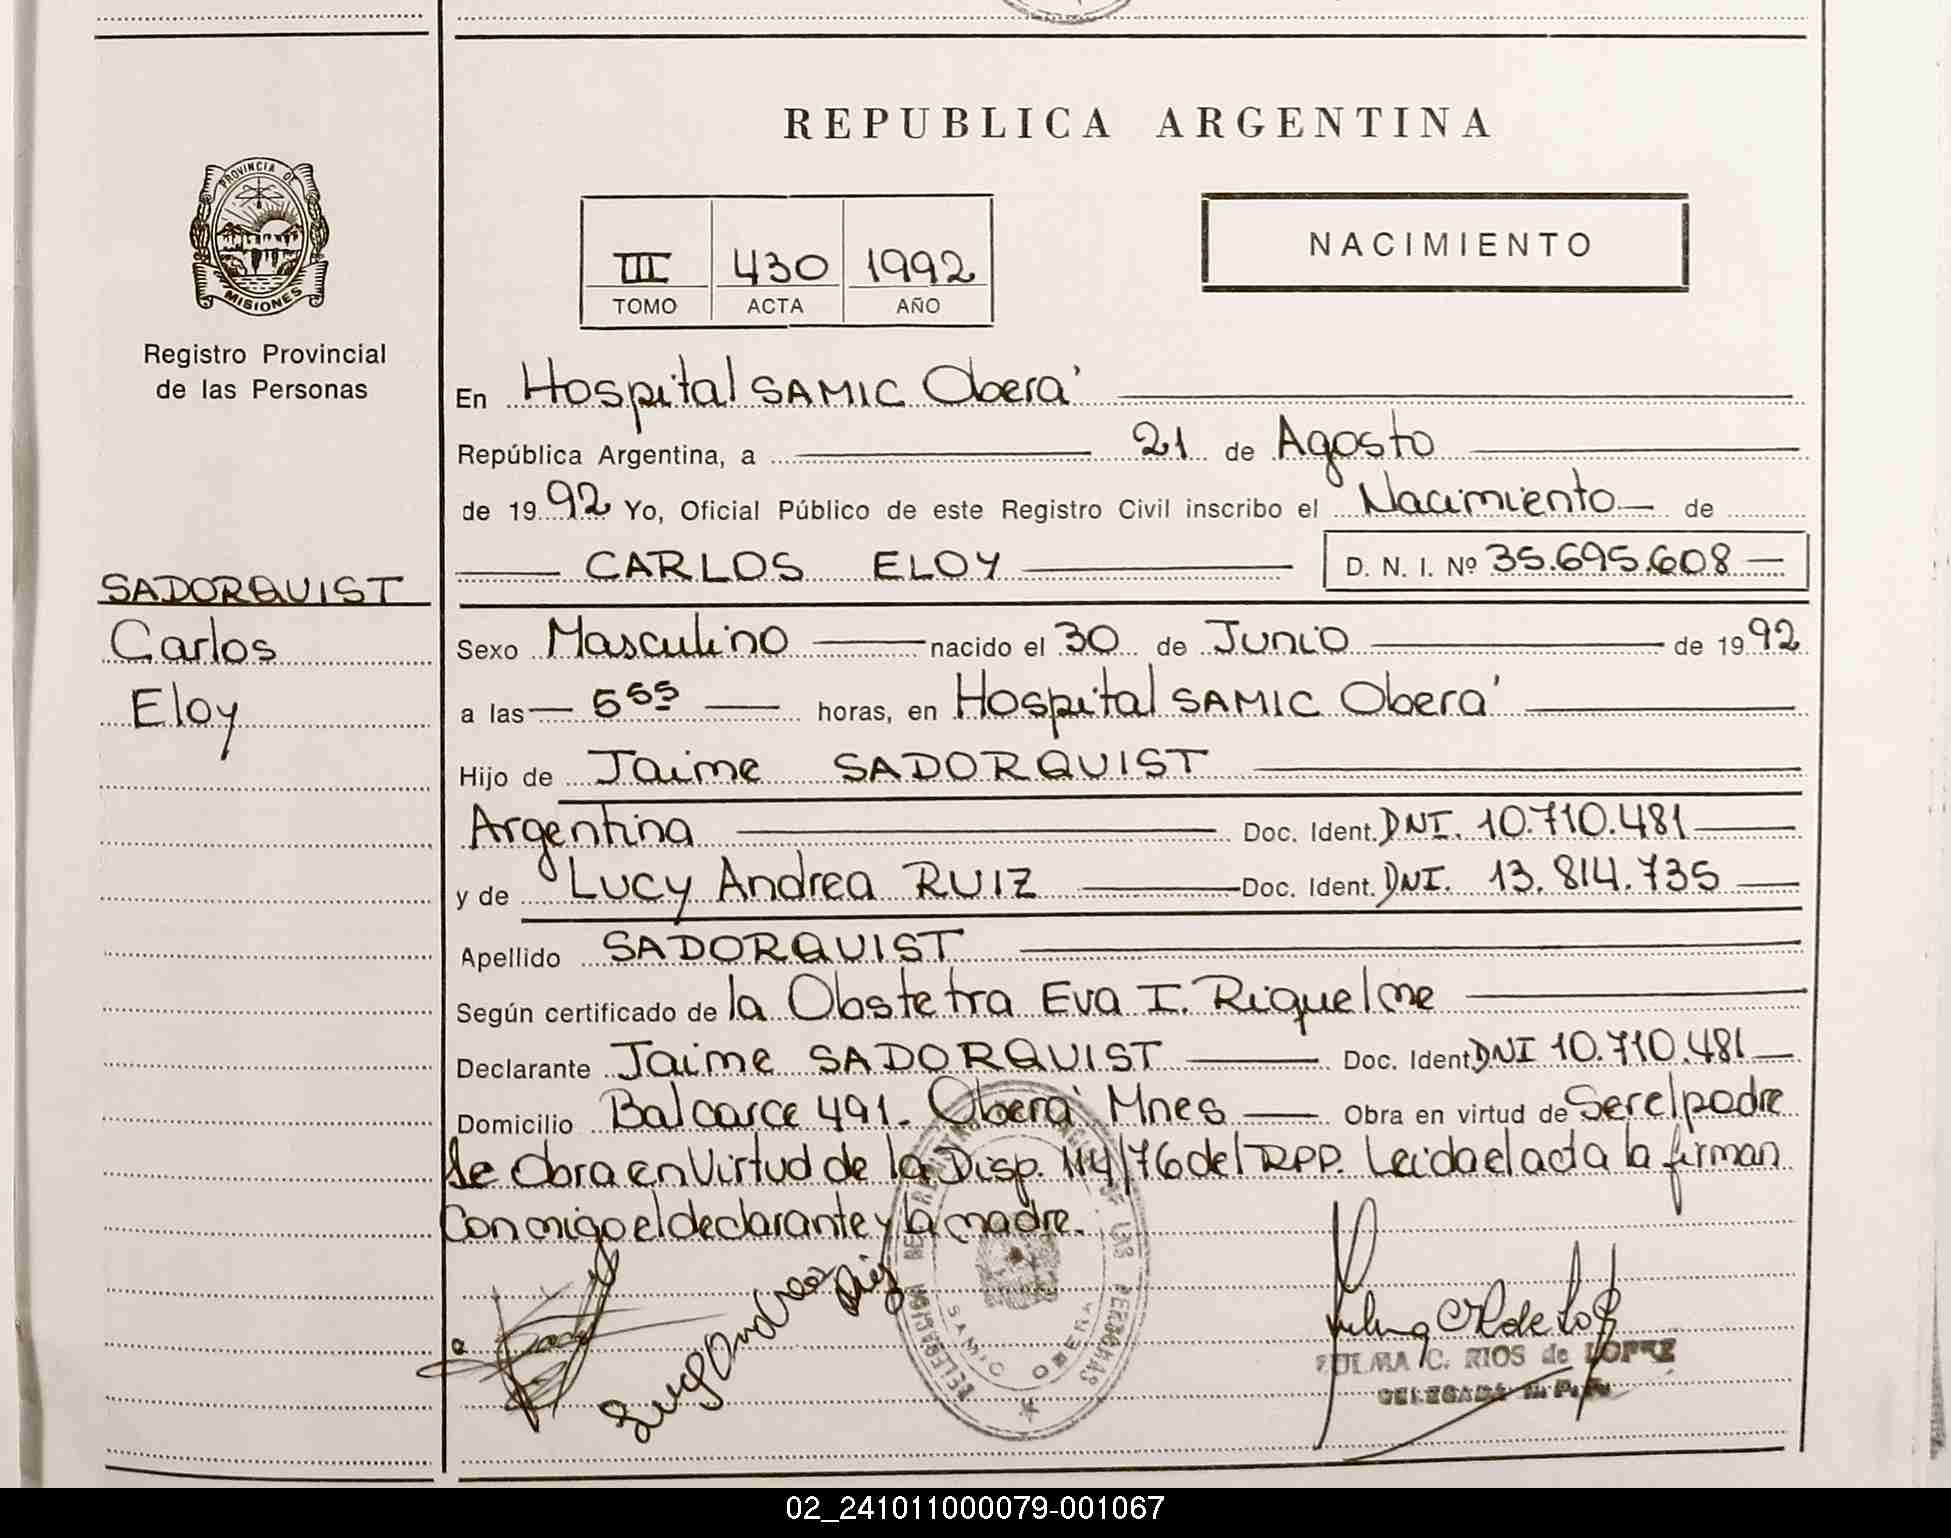 REPUBLICA ARGENTINA
PROVINCIA DE
MISIONES
Registro Provincial
de las Personas
III 430 1992
TOMO ACTA AÑO
NACIMIENTO
En Hospital SAMIC Oberá
República Argentina, a 21 de Agosto
de 1992 Yo, Oficial Público de este Registro Civil inscribo el Nacimiento de
CARLOS ELOY D. N. I. Nº 35.695.608
SADORQUIST
Carlos
Eloy
Sexo Masculino nacido el 30 de Junio de 1992
a las 5 55 horas, en Hospital SAMIC Oberá
Hijo de Jaime SADORQUIST
Argentina Doc. Ident. DNI. 10.710.481
y de Lucy Andrea RUIZ Doc. Ident. DNI. 13.814.735
Apellido SADORQUIST
Según certificado de la Obstetra Eva I. Riquelme
Declarante Jaime SADORQUIST Doc. Ident. DNI 10.710.481
Domicilio Balcarce 491. Oberá Mnes Obra en virtud de Ser el padre
Se Obra en Virtud de la Disp. 114/76 del RPP. Leida el acta la firman
Conmigo el declarante y la madre.
Lucy Andrea Ruiz
DELEGACION
DE LAS PERSONAS
OBERA
ZULMA C. RIOS de LOPEZ
DELEGADA
02_241011000079-001067